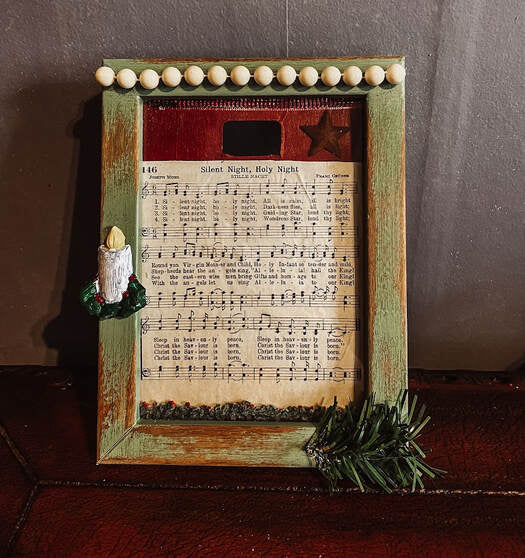 146 Silent Night, Holy Night
Joseph Mohr STILLE NACHT Franz Gruber
1. Si - lent night, ho - ly night, All is calm, all is bright
2. Si - lent night, ho - ly night, Dark-ness flies, all is light;
3. Si - lent night, ho - ly night, Guid-ing Star, lend thy light;
4. Si - lent night, ho - ly night, Wondrous Star, lend thy light;
Round yon Vir-gin Moth-er and Child, Ho - ly In-fant so ten-der and mild,
Shep-herds hear the an - gels sing, "Al - le - lu - ia! hail the King!
See the east-ern wise men bring Gifts and hom - age to our King!
With the an-gels let us sing Al - le - lu - ia to our King!
Sleep in heav-en - ly peace, Sleep in heav-en - ly peace.
Christ the Sav - iour is born, Christ the Sav - iour is born."
Christ the Sav - iour is born, Christ the Sav - iour is born.
Christ the Sav - iour is born, Christ the Sav - iour is born.